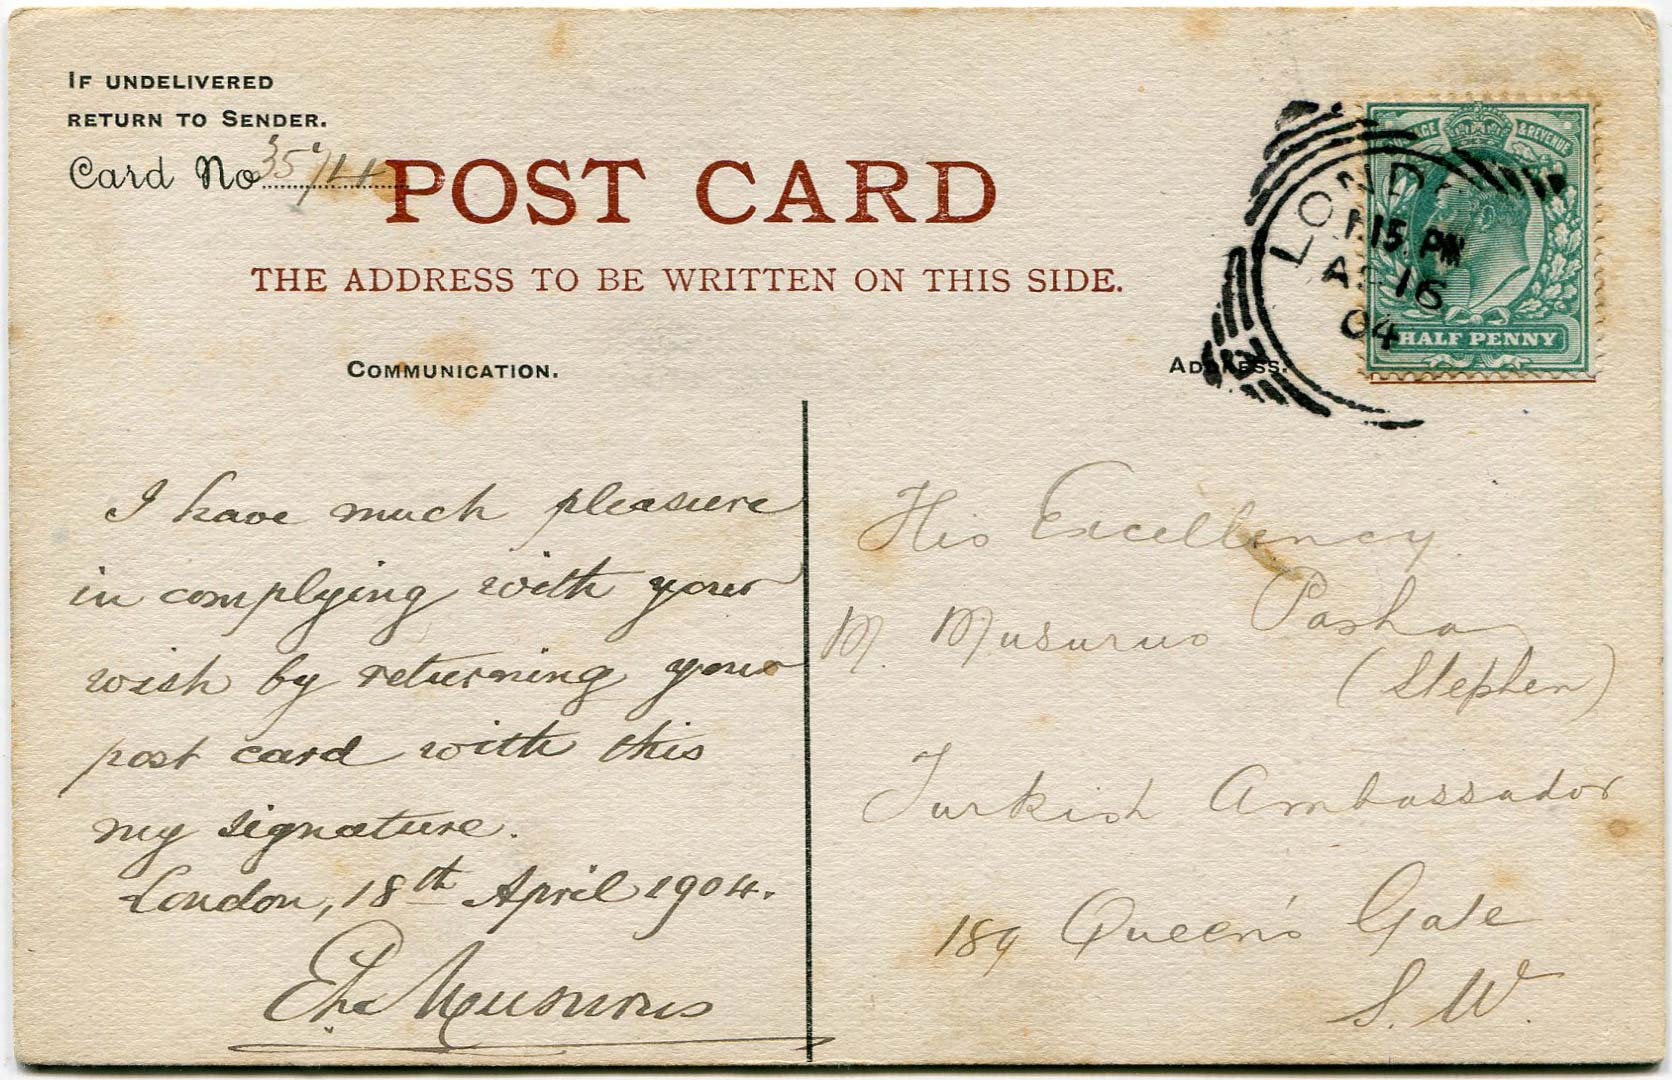 IF UNDELIVERED
RETURN TO SENDER.
Card No
POST CARD
THE ADDRESS TO BE WRITTEN ON THIS SIDE.
COMMUNICATION.
ADDRESS.
LOND
1.15 PM
AP 16
04
& REVENUE
HALF PENNY
I have much pleasure
in complying with your
wish by returning your
post card with this
my signature.
London, 18th April 1904.
Musurus
His Excellency
M. Musurus Pasha
(Stephen)
Turkish Ambassador
189 Queen's Gate
S. W.